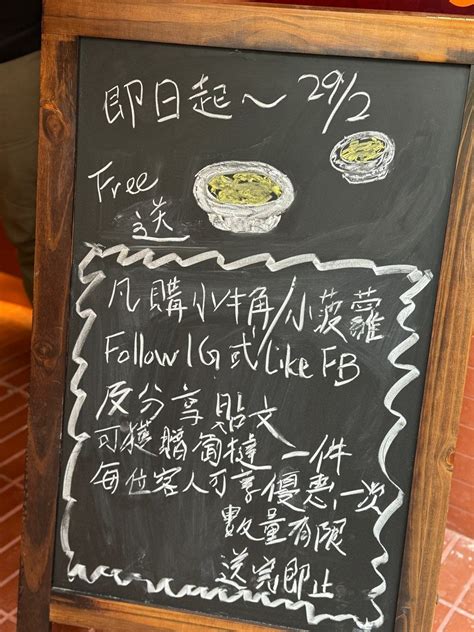 即日起～29/2
Free
送
凡購小牛角/小菠蘿
Follow IG 或 Like FB
及分享貼文
可獲贈葡撻一件
每位客人可享優惠一次
數量有限
送完即止